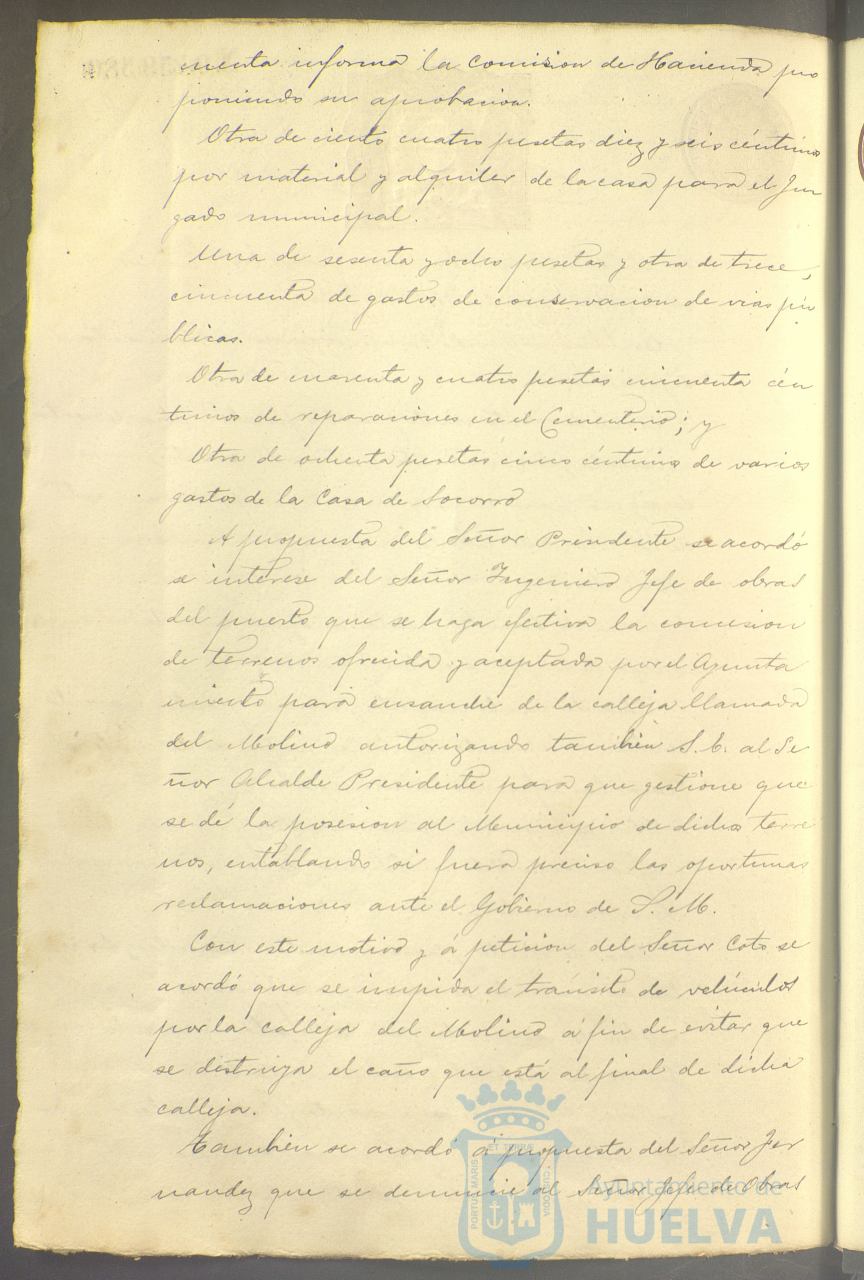 cuenta informa la Comision de Hacienda pro
poniendo su aprobacion.
Otra de ciento cuatro pesetas diez y seis céntimos
por material y alquiler de la casa para el Juz
gado municipal.
Una de sesenta y ocho pesetas y otra de trece,
cincuenta de gastos de conservacion de vias pú
blicas.
Otra de cuarenta y cuatro pesetas cincuenta cén
timos de reparaciones en el Cementerio; y
Otra de ochenta pesetas cinco céntimos de varios
gastos de la Casa de Socorro
A propuesta del Señor Presidente se acordó
se interese del Señor Ingeniero Jefe de obras
del puerto que se haga efectiva la concesion
de terrenos ofrecida y aceptada por el Ayunta
miento para ensanche de la calleja llamada
del Molino autorizando también S. E. al Se
ñor Alcalde Presidente para que gestione que
se dé la posesion al Municipio de dichos terre
nos, entablando si fuera preciso las oportunas
reclamaciones ante el Gobierno de S. M.
Con este motivo y á peticion del Señor Coto se
acordó que se impida el tránsito de vehículos
por la calleja del Molino á fin de evitar que
se destruya el caño que está al final de dicha
calleja.
También se acordó á propuesta del Señor Fer
nandez que se denuncie al Señor Jefe de Obras
PORTUS MARIS ET TERRÆ CUSTODIA
Ayuntamiento de
HUELVA